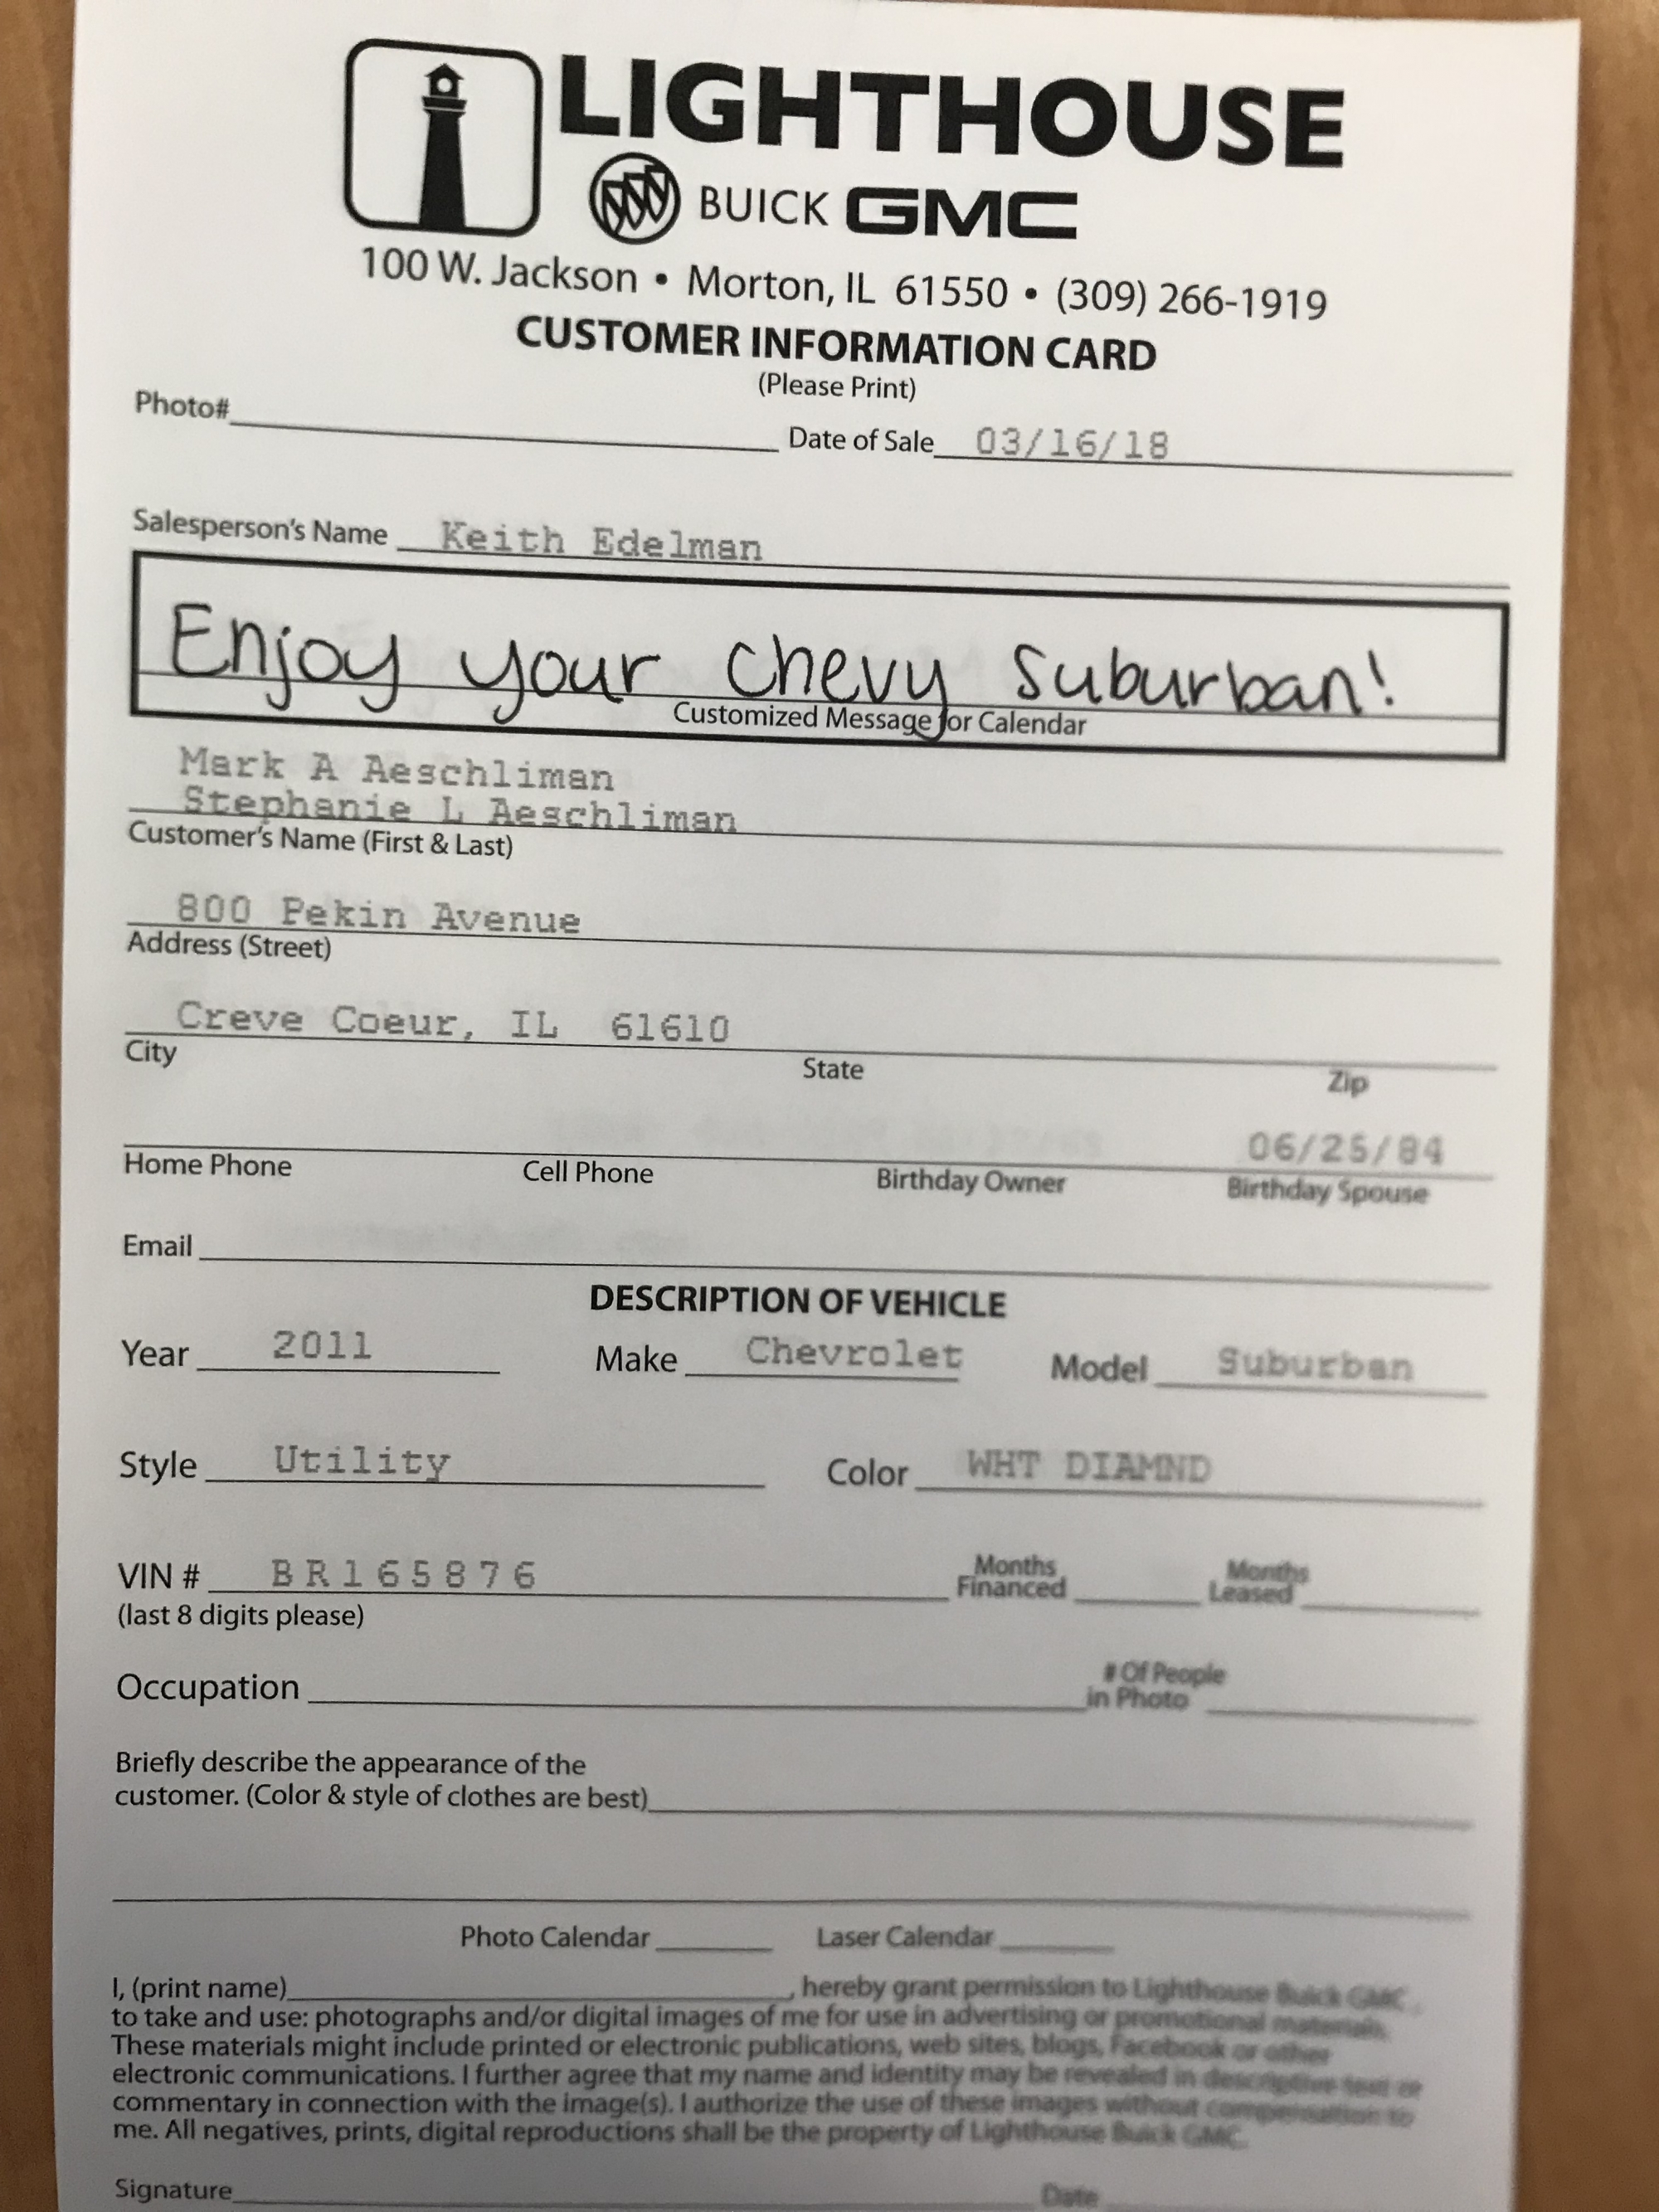 LIGHTHOUSE
BUICK GMC
100 W. Jackson • Morton, IL 61550 • (309) 266-1919
CUSTOMER INFORMATION CARD
(Please Print)
Photo# Date of Sale 03/16/18
Salesperson's Name Keith Edelman
Enjoy your Chevy Suburban!
Customized Message for Calendar
Mark A Aeschliman
Stephanie L Aeschliman
Customer's Name (First & Last)
800 Pekin Avenue
Address (Street)
Creve Coeur, IL 61610
City State Zip
06/25/84
Home Phone Cell Phone Birthday Owner Birthday Spouse
Email
DESCRIPTION OF VEHICLE
Year 2011 Make Chevrolet Model Suburban
Style Utility Color WHT DIAMND
VIN # BR165876 Months Financed Months Leased
(last 8 digits please)
Occupation # Of People in Photo
Briefly describe the appearance of the
customer. (Color & style of clothes are best)
Photo Calendar Laser Calendar
I, (print name) , hereby grant permission to Lighthouse Buick GMC
to take and use: photographs and/or digital images of me for use in advertising or promotional materials.
These materials might include printed or electronic publications, web sites, blogs, Facebook or other
electronic communications. I further agree that my name and identity may be revealed in descriptive text or
commentary in connection with the image(s). I authorize the use of these images without compensation to
me. All negatives, prints, digital reproductions shall be the property of Lighthouse Buick GMC.
Signature Date